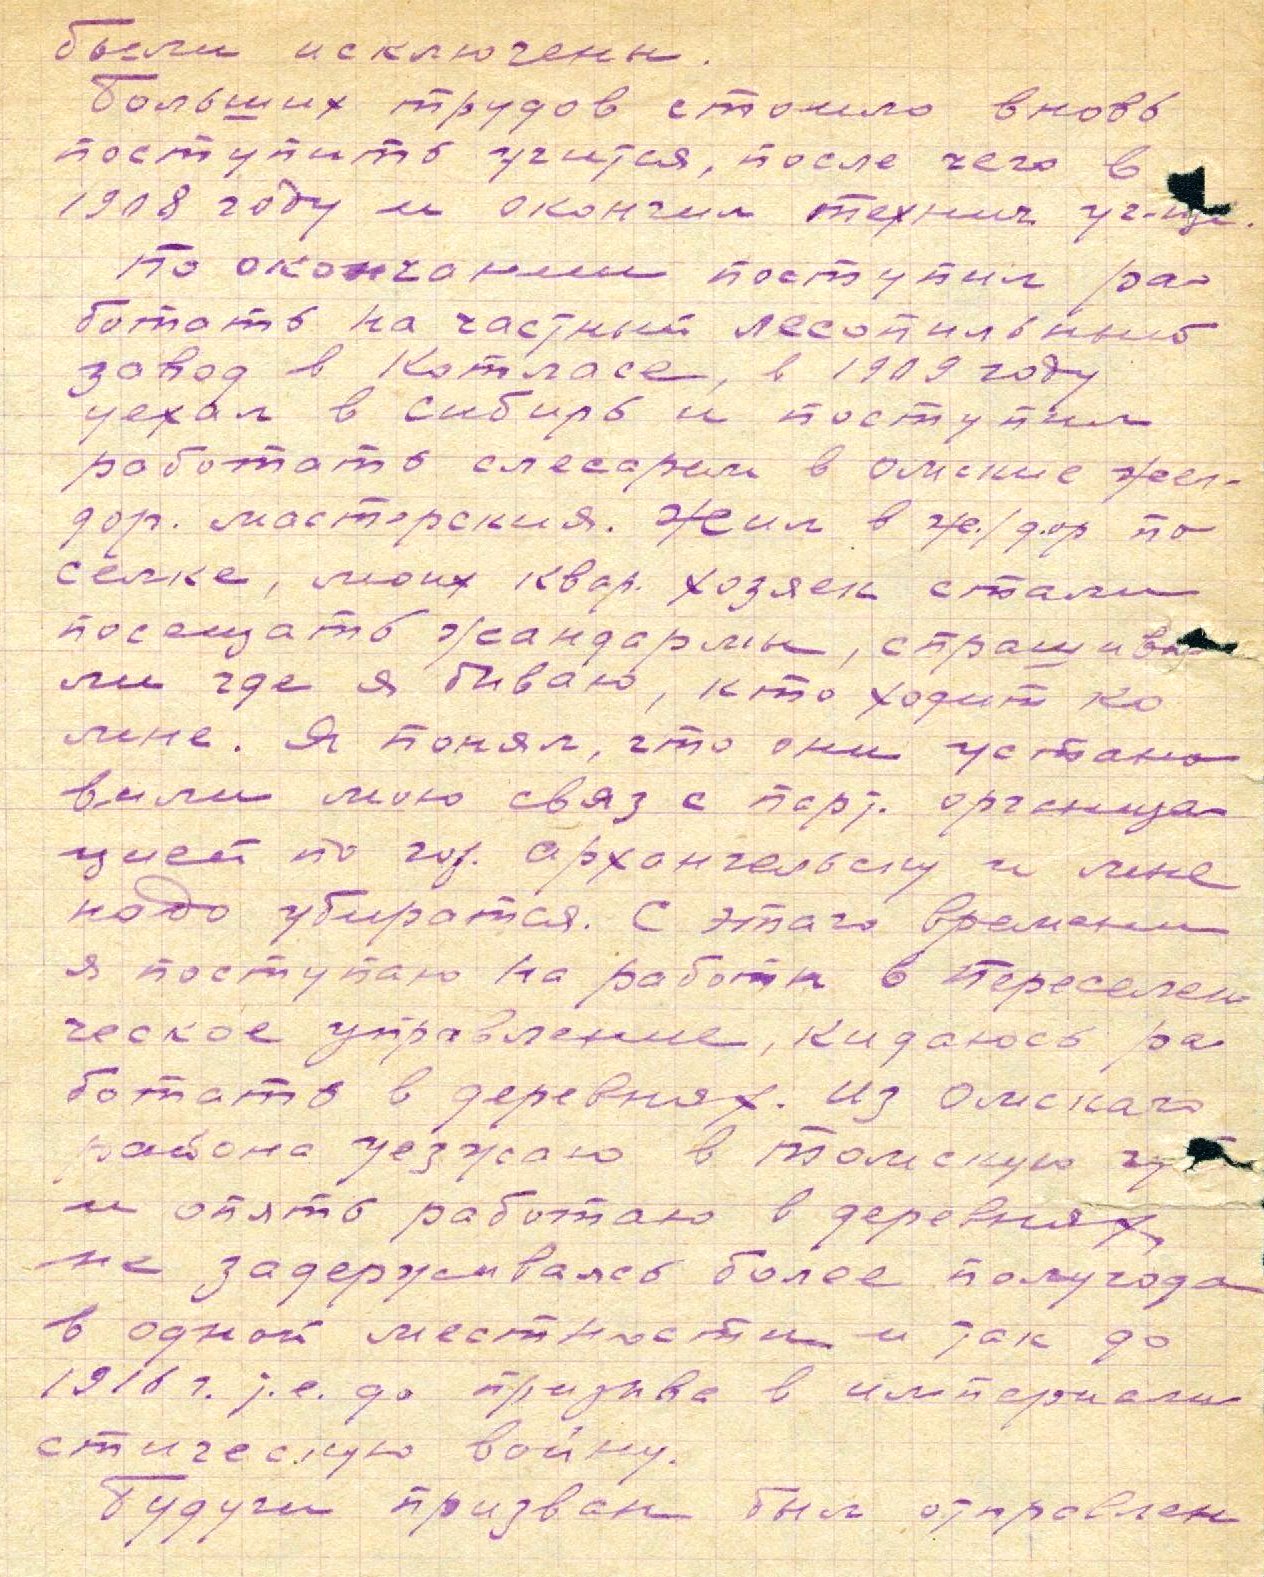 были исключены.
Больших трудов стоило вновь
поступить учится, после чего в
1908 году и окончил технич уч-ще.
По окончании поступил ра-
ботать на частный лесопильный
завод в Котласе, в 1909 году
уехал в Сибирь и поступил
работать слесарем в Омские жел-
дор. мастерския. Жил в же./дор по
селке, моих квар. хозяек стали
посещать жандармы, спрашива-
ли где я биваю, кто ходит ко
мне. Я понял, что они устано
вили мою связ с парт. организа-
цией по гор. Архангельску и мне
надо убиратся. С этаго времени
я поступаю на работы в Переселен-
ческое управление, кидаюсь ра-
ботать в деревнях. Из Омскаго
района уезжаю в Томскую
и опять работаю в деревнях,
не задерживаясь более полугода
в одной местности и так до
1916 г. т.е. до призыва в империали
стическую войну.
Будучи призван был отправлен